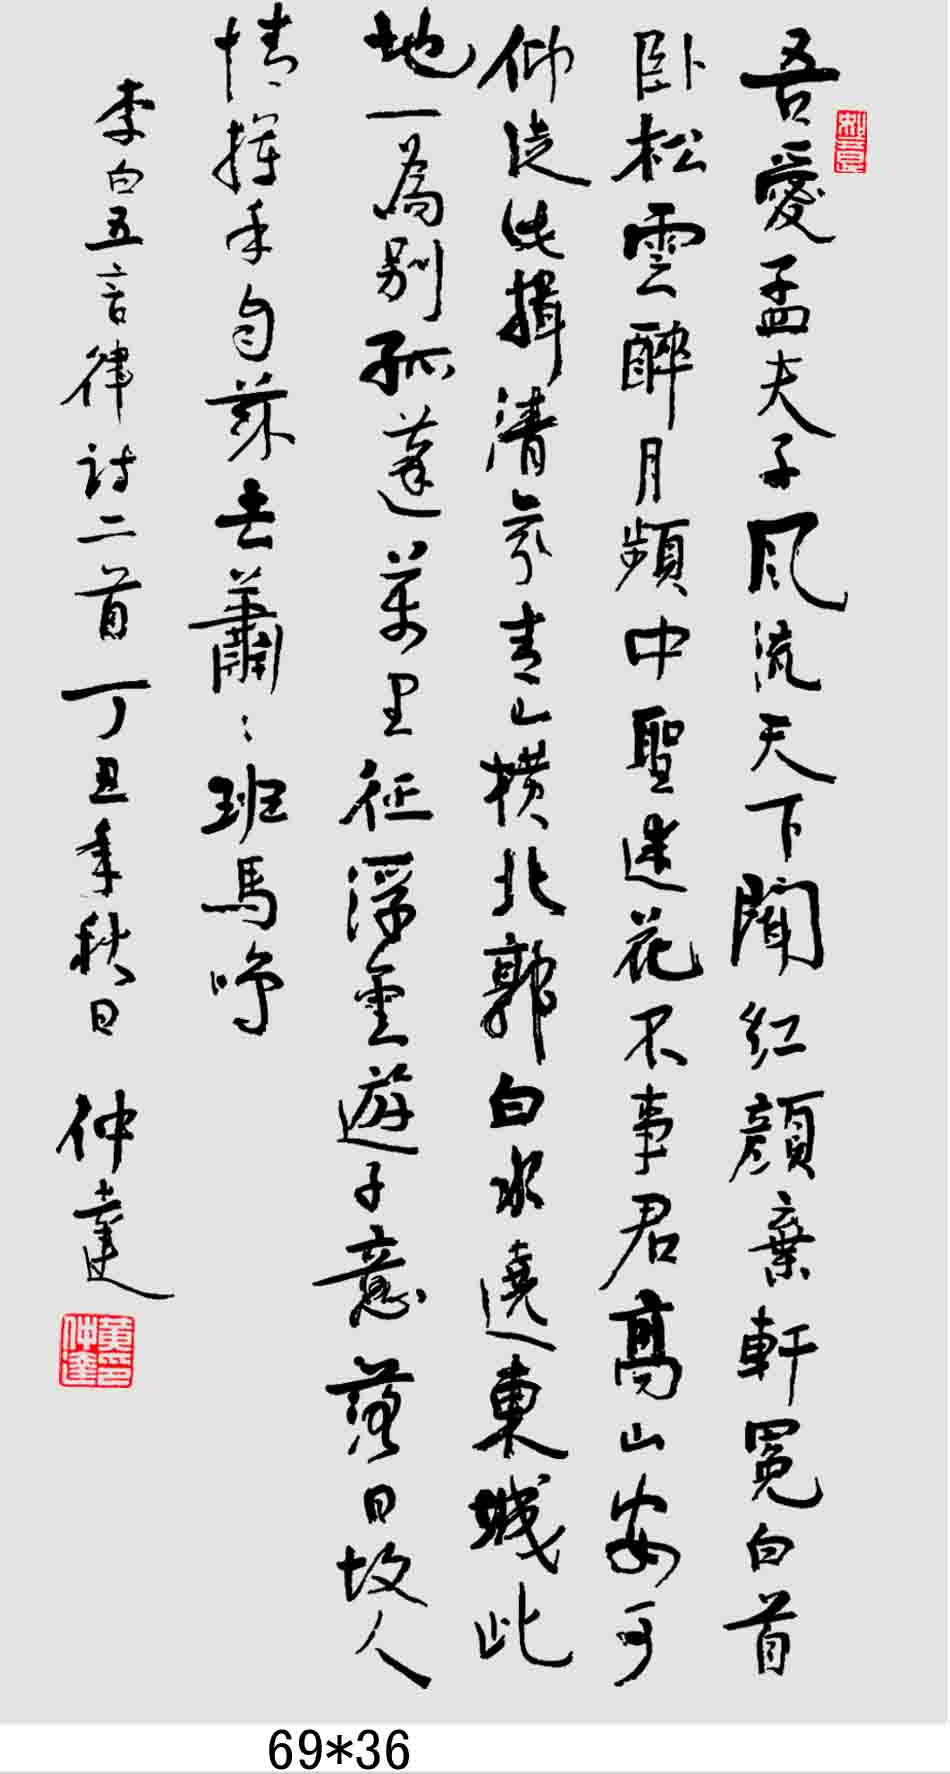 吾愛孟夫子風流天下聞紅顏棄軒冕白首
卧松雲醉月頻中聖迷花不事君高山安可
仰徒此揖清芬青山橫北郭白水遶東城此
地一爲别孤蓬萬里征浮雲遊子意落日故人
情揮手自茲去蕭〻班馬鳴
李白五言律詩二首丁丑年秋日 仲達
黃仲達印
69*36